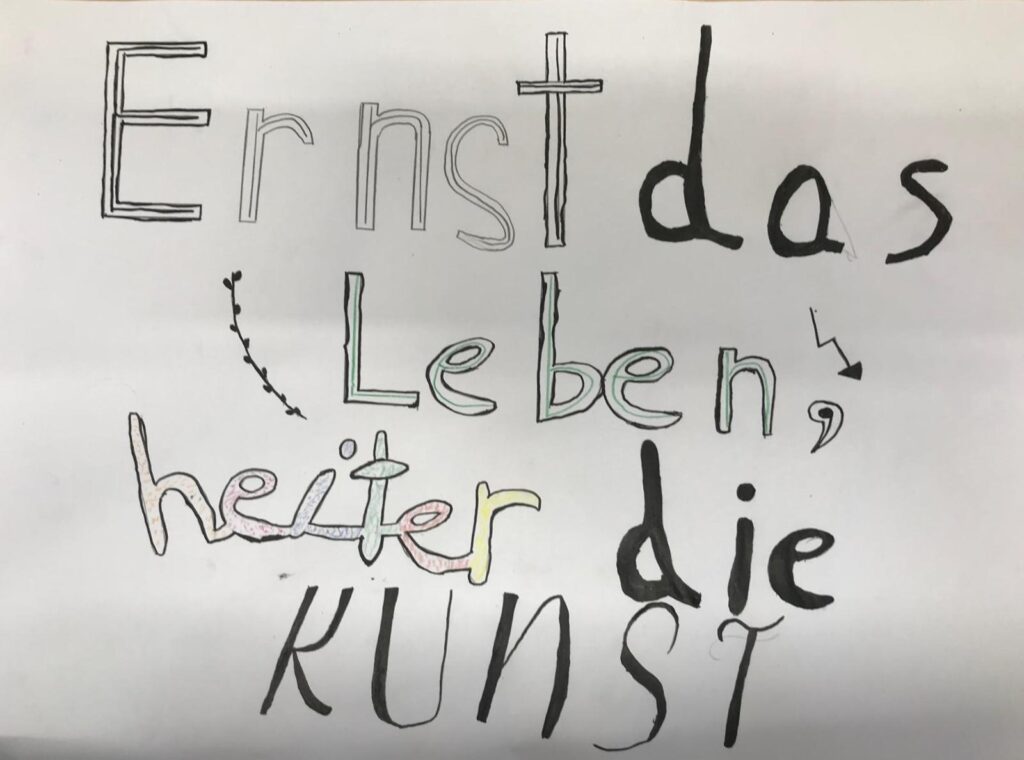 Ernst das
Leben,
heiter die
KUNST